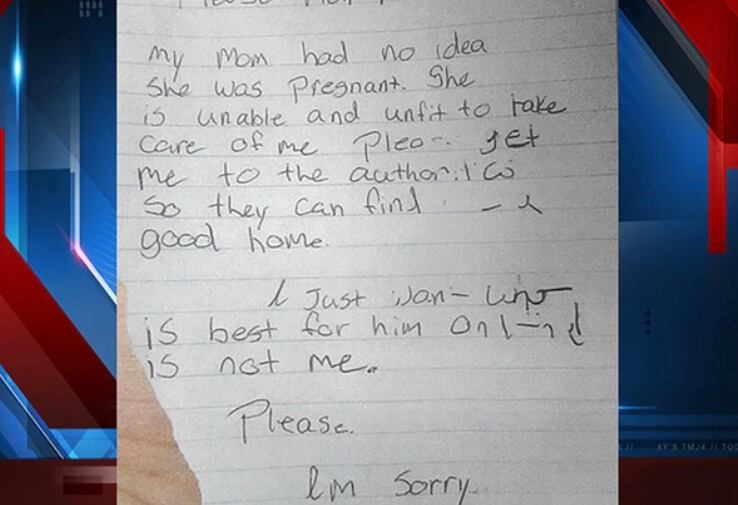 Please
my mom had no idea
She was Pregnant. She
is unable and unfit to take
Care of me get
me to the authorities
So they can find
good home.
I Just
is best for him
is not me.
Please.
Im Sorry.
AY'S TMJ4 // TOD